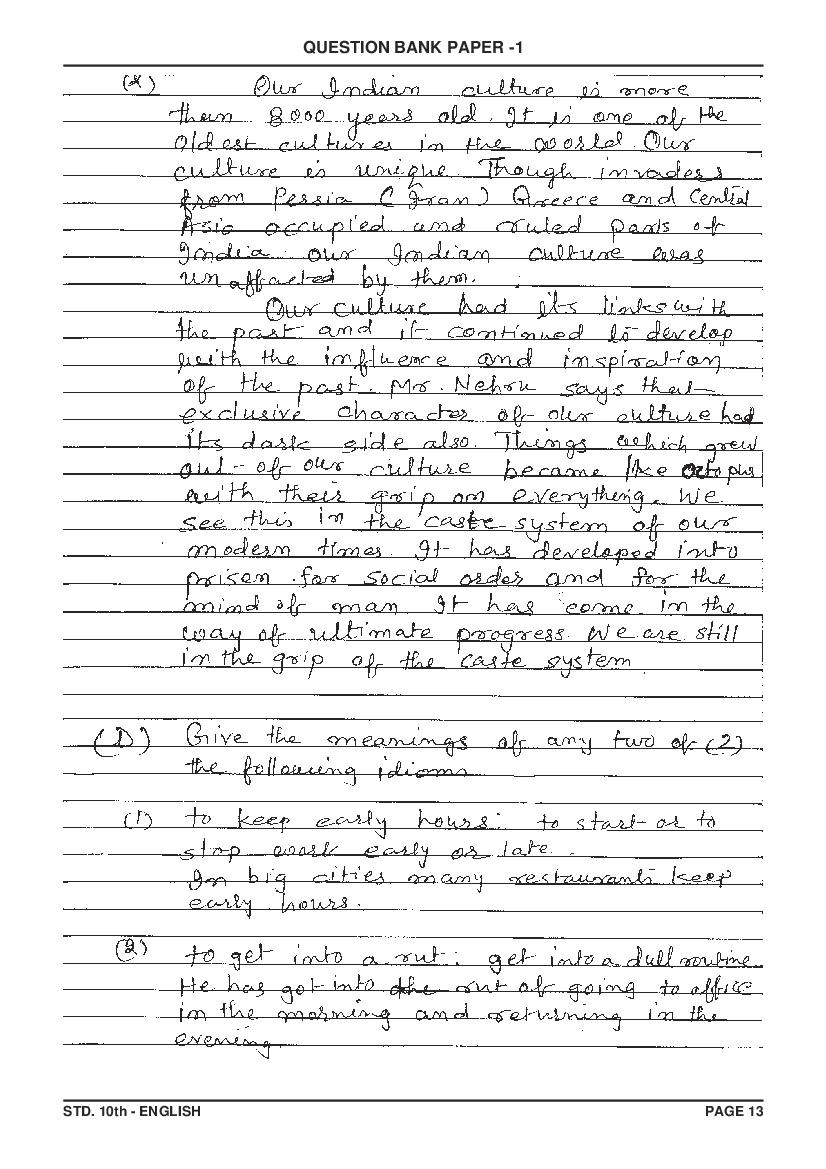 QUESTION BANK PAPER -1
(x) Our Indian culture is more
than 8000 years old. It is one of the
oldest cultures in the world. Our
culture is unique. Though invaders
from Persia (Iran) Greece and Central
Asia occupied and ruled parts of
India. our Indian culture was
unaffacted by them.
Our culture had its links with
the past and it continued to develop
with the influence and inspiration
of the past. Mr. Nehru says that
exclusive character of our culture had
its dark side also. Things which grew
out of our culture became like octopus
with their grip on everything. We
see this in the caste system of our
modern times. It has developed into
prison for social order and for the
mind of man It has come in the
way of ultimate progress. We are still
in the grip of the caste system
(D) Give the meanings of any two of (2)
the following idioms
(1) to keep early hours: to start or to
stop work early or late.
In big cities many restaurants keep
early hours.
(2) to get into a rut: get into a dull routine
He has got into the rut of going to office
in the morning and returning in the
evening
STD. 10th - ENGLISH PAGE 13